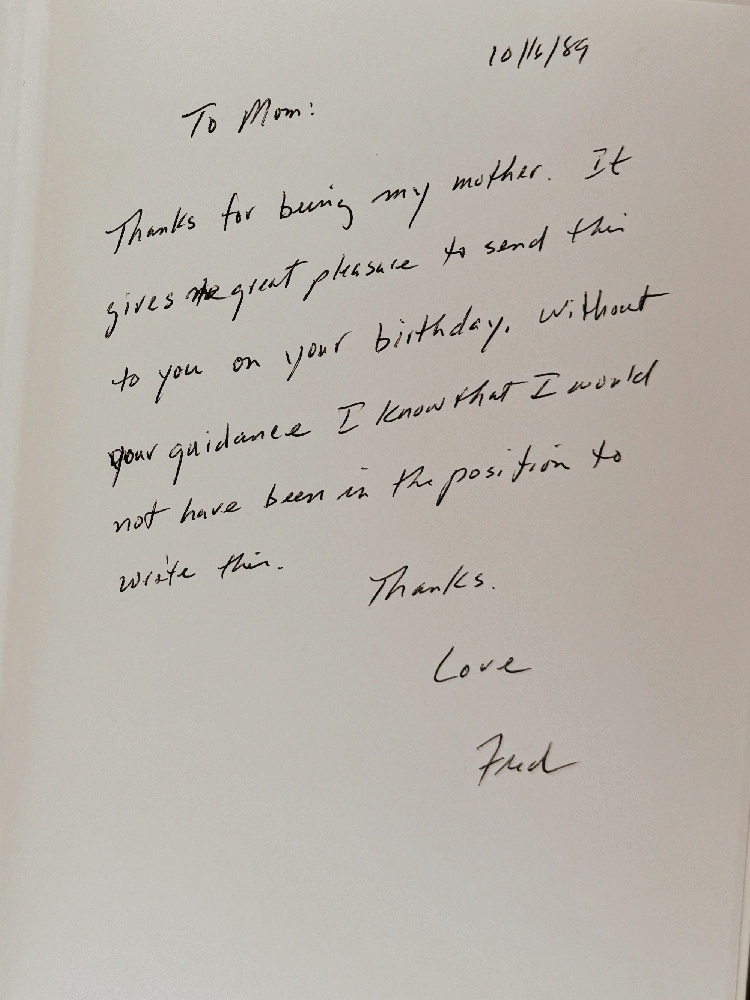 10/16/89
To Mom:
Thanks for being my mother. It
gives me great pleasure to send this
to you on your birthday. Without
your guidance I know that I would
not have been in the position to
write this.
Thanks.
Love
Fred